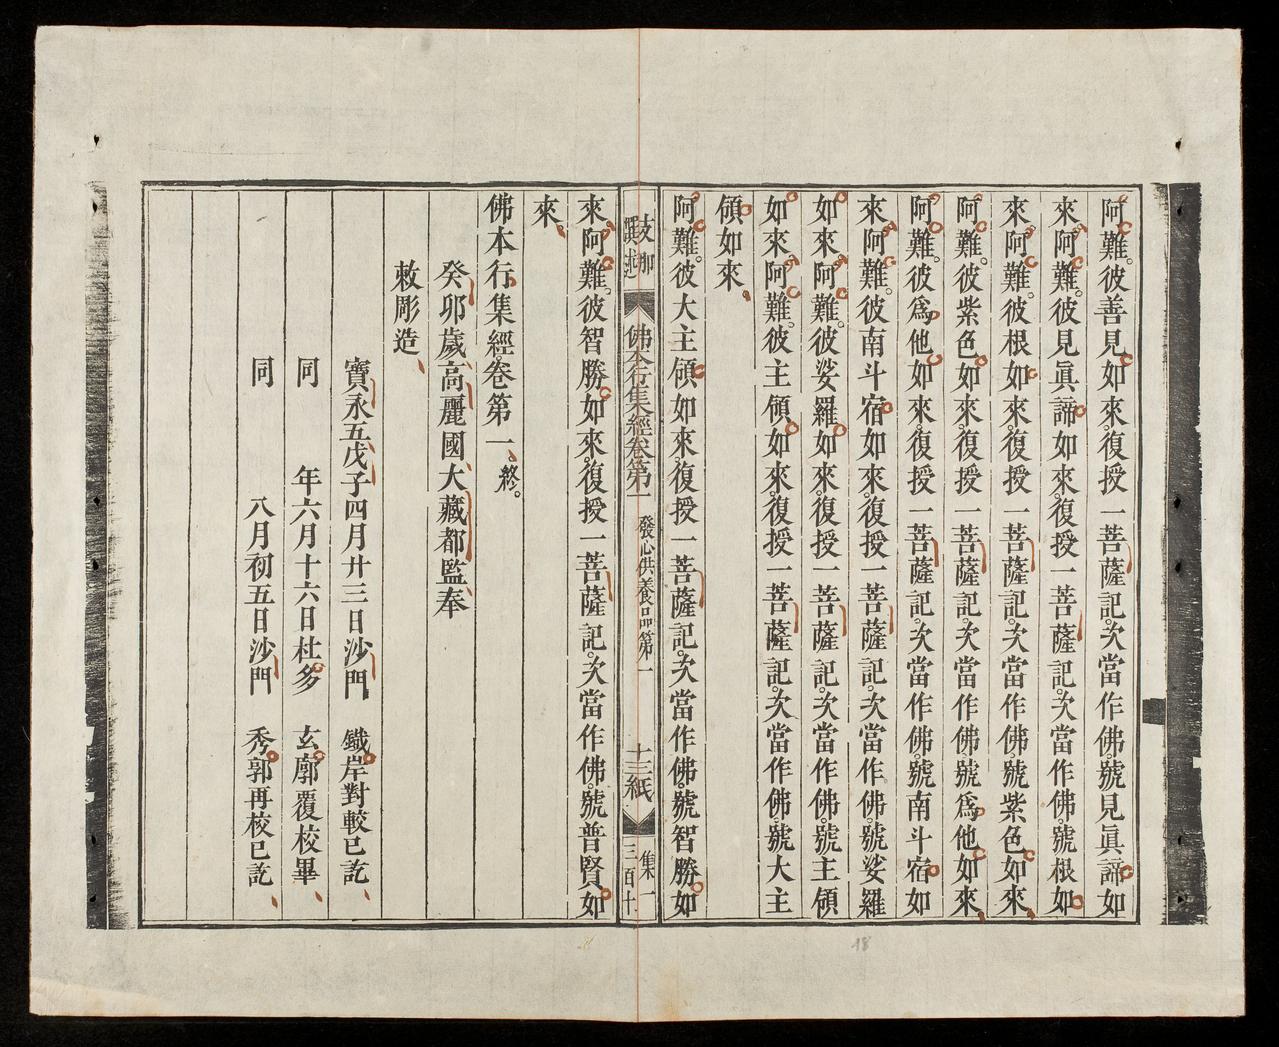 阿難。彼善見如來。復授一菩薩記。次當作佛。號見眞諦如
來。阿難。彼見眞諦如來。復授一菩薩記。次當作佛。號根如
來。阿難。彼根如來。復授一菩薩記。次當作佛。號紫色如來。
阿難。彼紫色如來。復授一菩薩記。次當作佛。號爲他如來。
阿難。彼爲他如來。復授一菩薩記。次當作佛。號南斗宿如
來。阿難。彼南斗宿如來。復授一菩薩記。次當作佛。號娑羅
如來。阿難。彼娑羅如來。復授一菩薩記。次當作佛。號主領
如來。阿難。彼主領如來。復授一菩薩記。次當作佛。號大主
領如來。
阿難。彼大主領如來。復授一菩薩記。次當作佛。號智勝如
支那
撰述
佛本行集經卷第一 發心供養品第一 十三紙
集一
三百十
來。阿難。彼智勝如來。復授一菩薩記。次當作佛。號普賢如
來。
佛本行集經卷第一 終。
癸卯歲高麗國大藏都監奉
敕彫造
寶永五戊子四月廿三日沙門 鐵岸對較已訖
同 年六月十六日杜多 玄廓覆校畢
同 八月初五日沙門 秀郭再校已訖
18